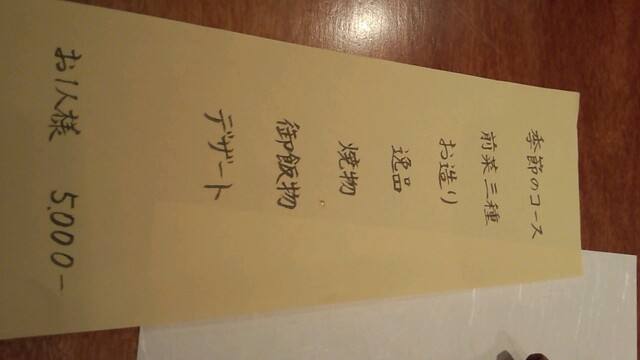 季節のコース
前菜三種
お造り
逸品
焼物
御飯物
デザート
お1人様 5.000-